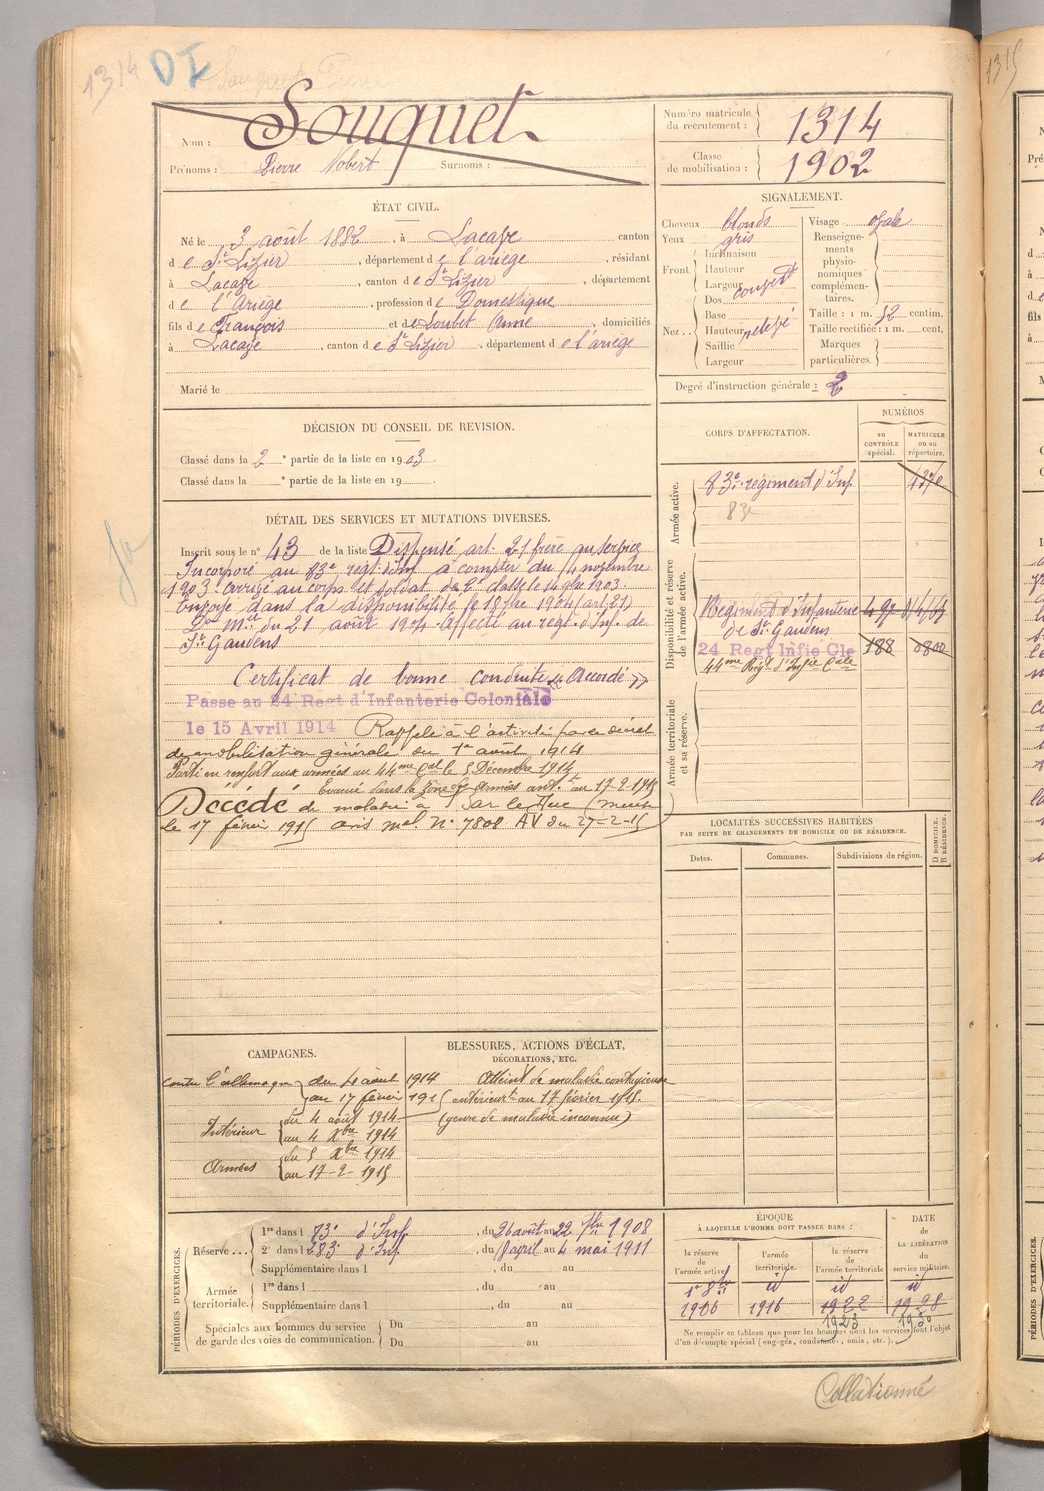 1314 DI
Nom : Souquet
Prénoms : Pierre Nobert Surnoms :
Numéro matricule du recrutement : 1314
Classe de mobilisation : 1902
ÉTAT CIVIL.
Né le 3 août 1882, à Lacaze canton
de St Lizier, département de l'ariège, résidant
à Lacaze, canton de St Lizier, département
de l'Ariège, profession de Domestique
fils de François et de Loubet Anne, domiciliés
à Lacaze, canton de St Lizier, département de l'ariège
Marié le
SIGNALEMENT.
Cheveux blonds
Yeux gris
Front. Inclinaison
Hauteur
Largeur
Nez.. Dos
Base
Hauteur
Saillie
Largeur
Visage
Renseignements physionomiques complémentaires.
Taille : 1 m. 52 centim.
Taille rectifiée : 1 m. cent.
Marques particulières.
Degré d'instruction générale : 2
DÉCISION DU CONSEIL DE REVISION.
Classé dans la 2e partie de la liste en 1903.
Classé dans la e partie de la liste en 19
CORPS D'AFFECTATION.
NUMÉROS
DU CONTRÔLE spécial.
MATRICULE ou au répertoire.
Armée active.
83e régiment d'Inf
83
Disponibilité et réserve de l'armée active.
Régiment d'Infanterie
de St Gaudens
24 Regt Infie Cle 188
44me Régt d'Infie Cale
Armée territoriale et sa réserve.
DÉTAIL DES SERVICES ET MUTATIONS DIVERSES.
Inscrit sous le n° 43 de la liste Dispensé art. 21 frère au service
Incorporé au 83e régt d'inf à compter du 14 novembre
1903. Arrivé au corps et soldat de 2e classe le 14 9bre 1903.
Envoyé dans la disponibilité le 18 7bre 1904 (art. 21)
Don Mle du 21 août 1904 Affecté au régt. d'Inf. de
St Gaudens
Certificat de bonne conduite « Accordé »
Passe au 24 Regt d'Infanterie Coloniale
le 15 Avril 1914 Rappelé à l'activité par décret
de mobilisation générale du 1er août 1914
Parti en renfort aux armées au 44me Cal le 5 Décembre 1914
Evacué dans la zône des armées antt au 17-2-1915
Décédé de maladie à Bar le Duc (meuse)
le 17 février 1915 avis mel. N° 7808 AV du 27-2-15
LOCALITÉS SUCCESSIVES HABITÉES
PAR SUITE DE CHANGEMENTS DE DOMICILE OU DE RÉSIDENCE.
Dates. Communes. Subdivisions de région. D DOMICILE. R RÉSIDENCE.
CAMPAGNES.
contre l'allemagne du 4 août 1914
au 17 février 1915
Intérieur du 4 août 1914
au 4 Xbre 1914
Armées du 5 Xbre 1914
au 17-2-1915
BLESSURES, ACTIONS D'ÉCLAT,
DÉCORATIONS, ETC.
Atteint de maladie contagieuse
antérieurt au 17 février 1915.
(genre de maladie inconnu)
PÉRIODES D'EXERCICES.
Réserve... 1re dans l 73e d'Inf., du 26 août au 22 7bre 1908
2e dans l 283e d'Inf., du avril au 4 mai 1911
Supplémentaire dans l , du au
Armée territoriale. 1re dans l , du au
Supplémentaire dans l , du au
Spéciales aux hommes du service de garde des voies de communication. Du au
Du au
ÉPOQUE
À LAQUELLE L'HOMME DOIT PASSER DANS :
la réserve de l'armée active. l'armée territoriale. la réserve de l'armée territoriale.
DATE de LA LIBÉRATION du service militaire.
id id id
1906 1916 1922 1928
1923 1930
Ne remplir ce tableau que pour les hommes dont les services font l'objet
d'un décompte spécial (engagés, condamnés, omis, etc.).
Collationné
1315